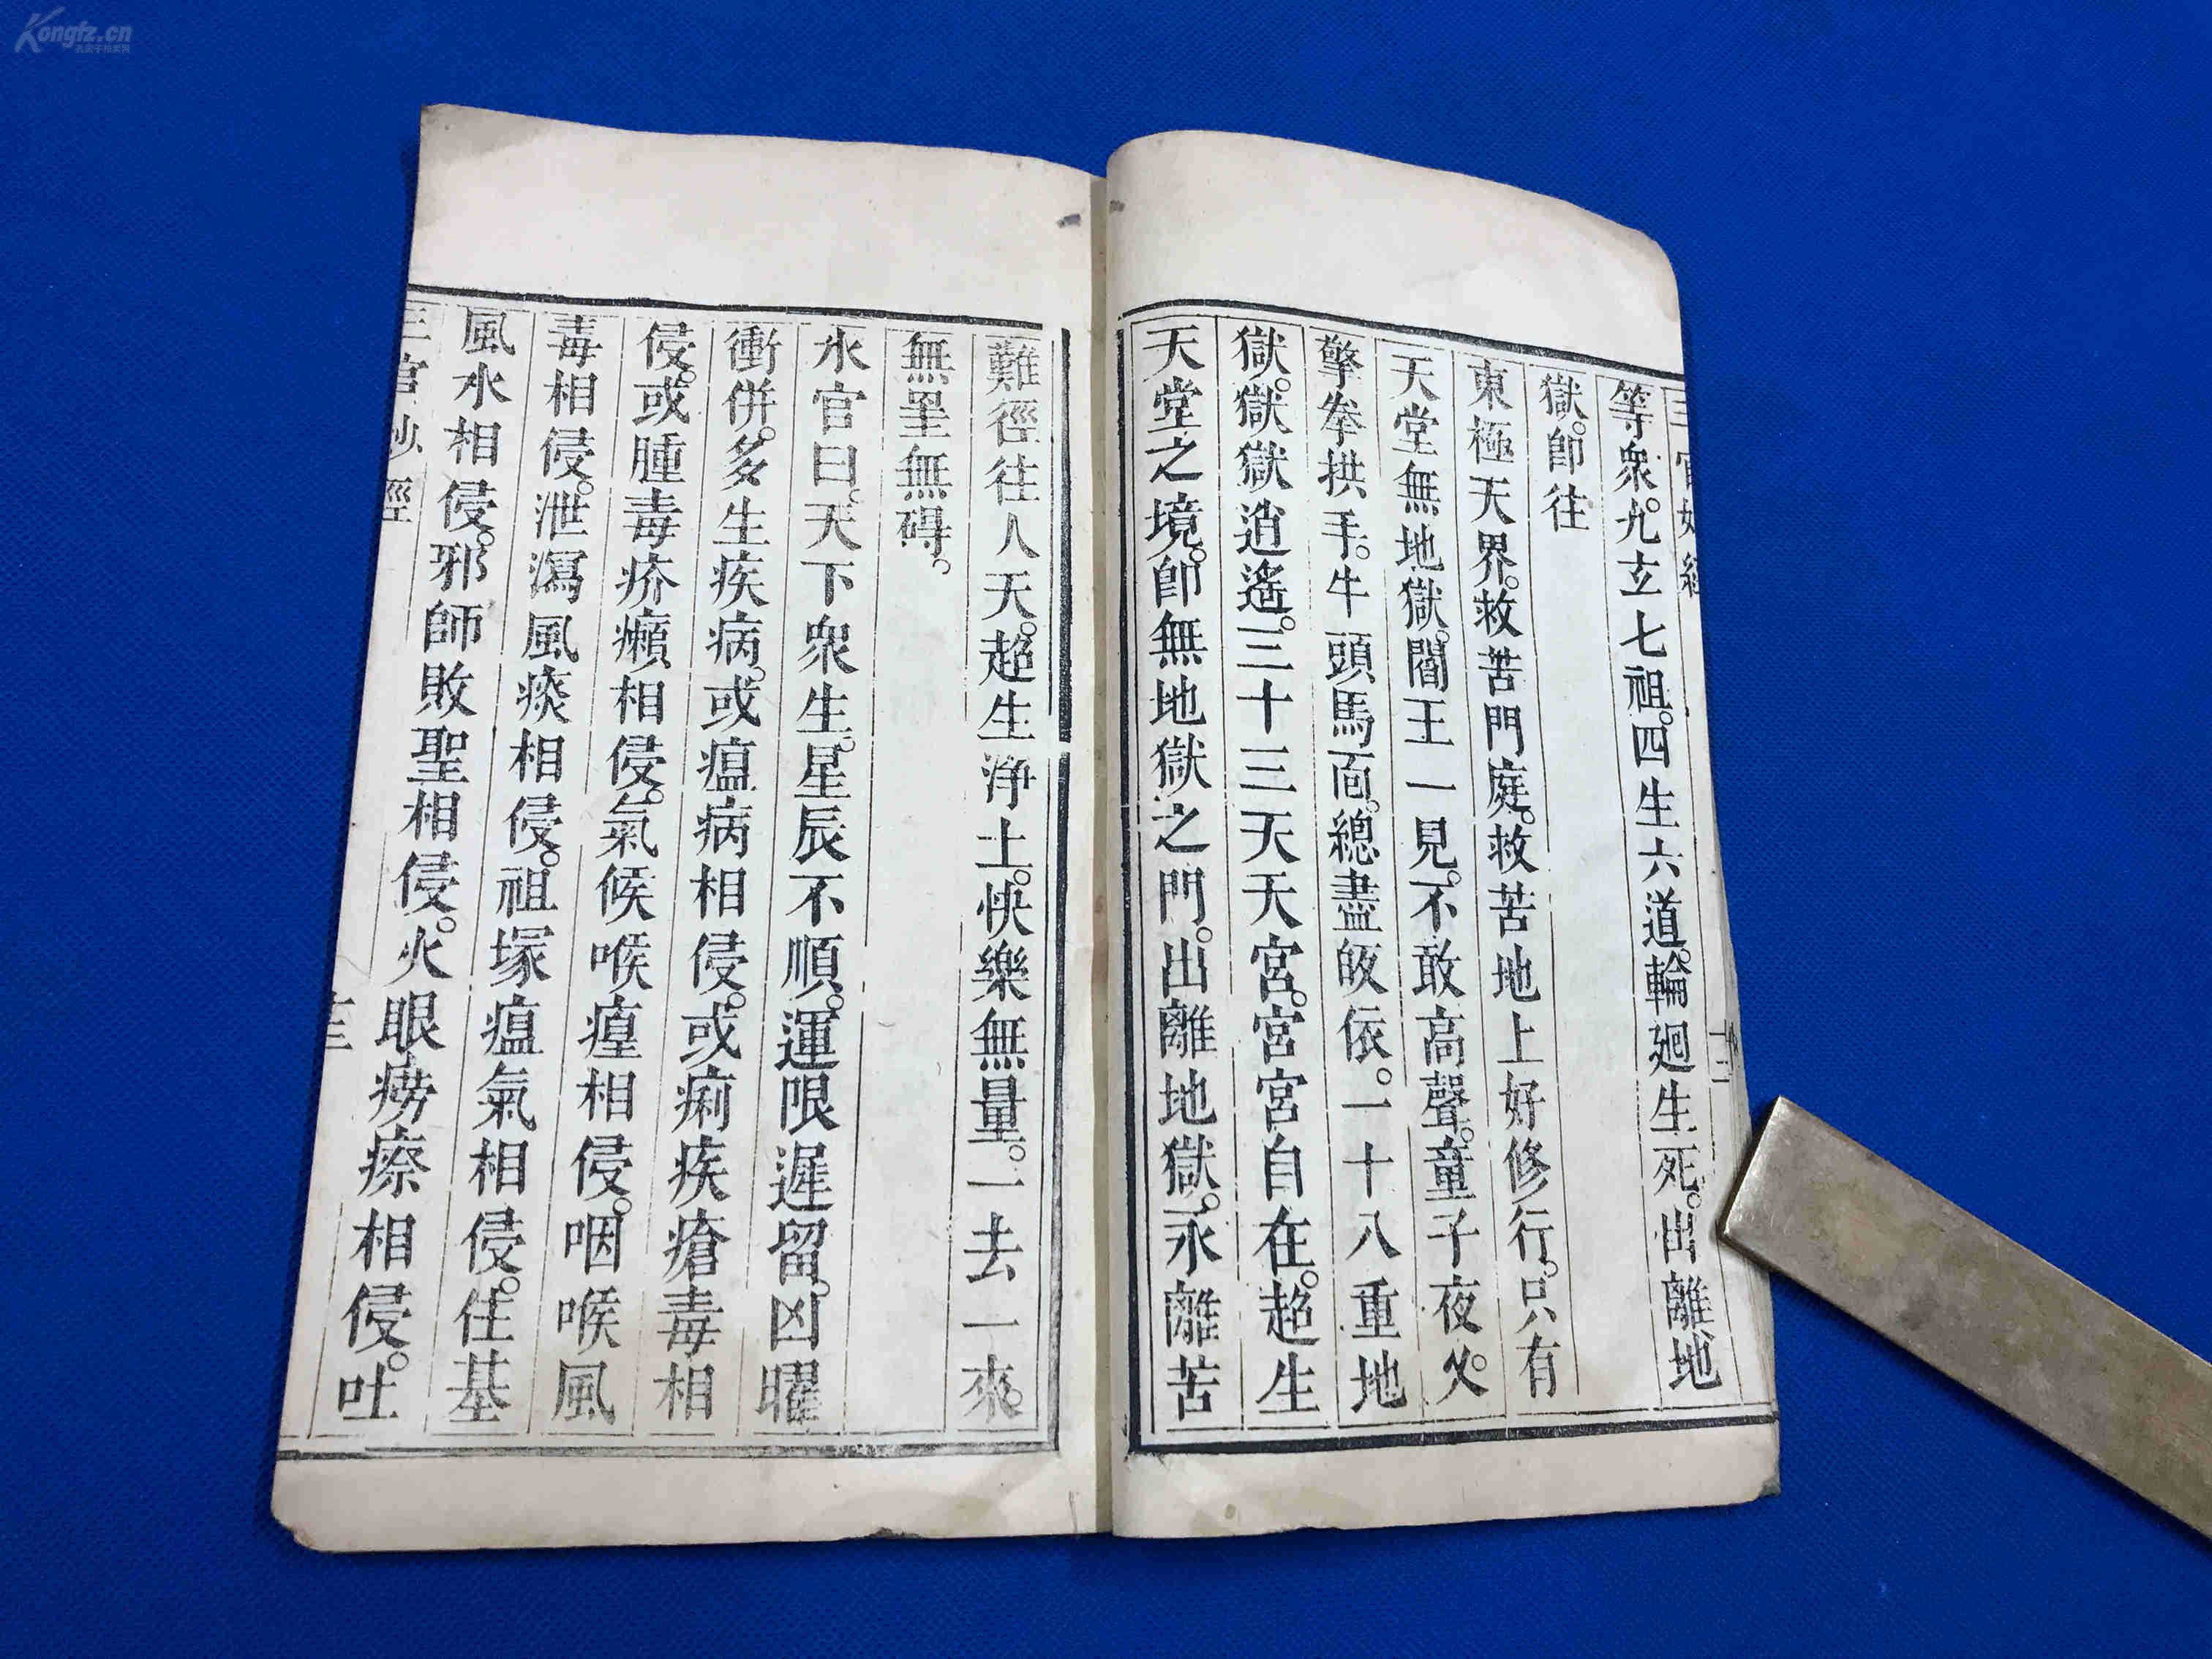 Kongfz.cn
三官妙經
等衆。九玄七祖。四生六道。輪廻生死。出離地
獄。卽往
東極天界。救苦門庭。救苦地上好修行。只有
天堂無地獄。閻王一見。不敢高聲。童子夜叉。
擎拳拱手。牛頭馬面。總盡皈依。一十八重地
獄。獄獄逍遙。三十三天天宮。宮宮自在。超生
天堂之境。卽無地獄之門。出離地獄。永離苦
十二
難徑往人天。超生淨土。快樂無量。一去一來。
無罣無碍。
水官曰。天下衆生。星辰不順。運限遲留。凶曜
衝併。多生疾病。或瘟病相侵。或痢疾瘡毒相
侵。或腫毒疥癩相侵。氣候喉瘴相侵。咽喉風
毒相侵。泄瀉風痰相侵。祖塚瘟氣相侵。住基
風水相侵。邪師敗聖相侵。火眼癆瘵相侵。吐
三官妙經
十三